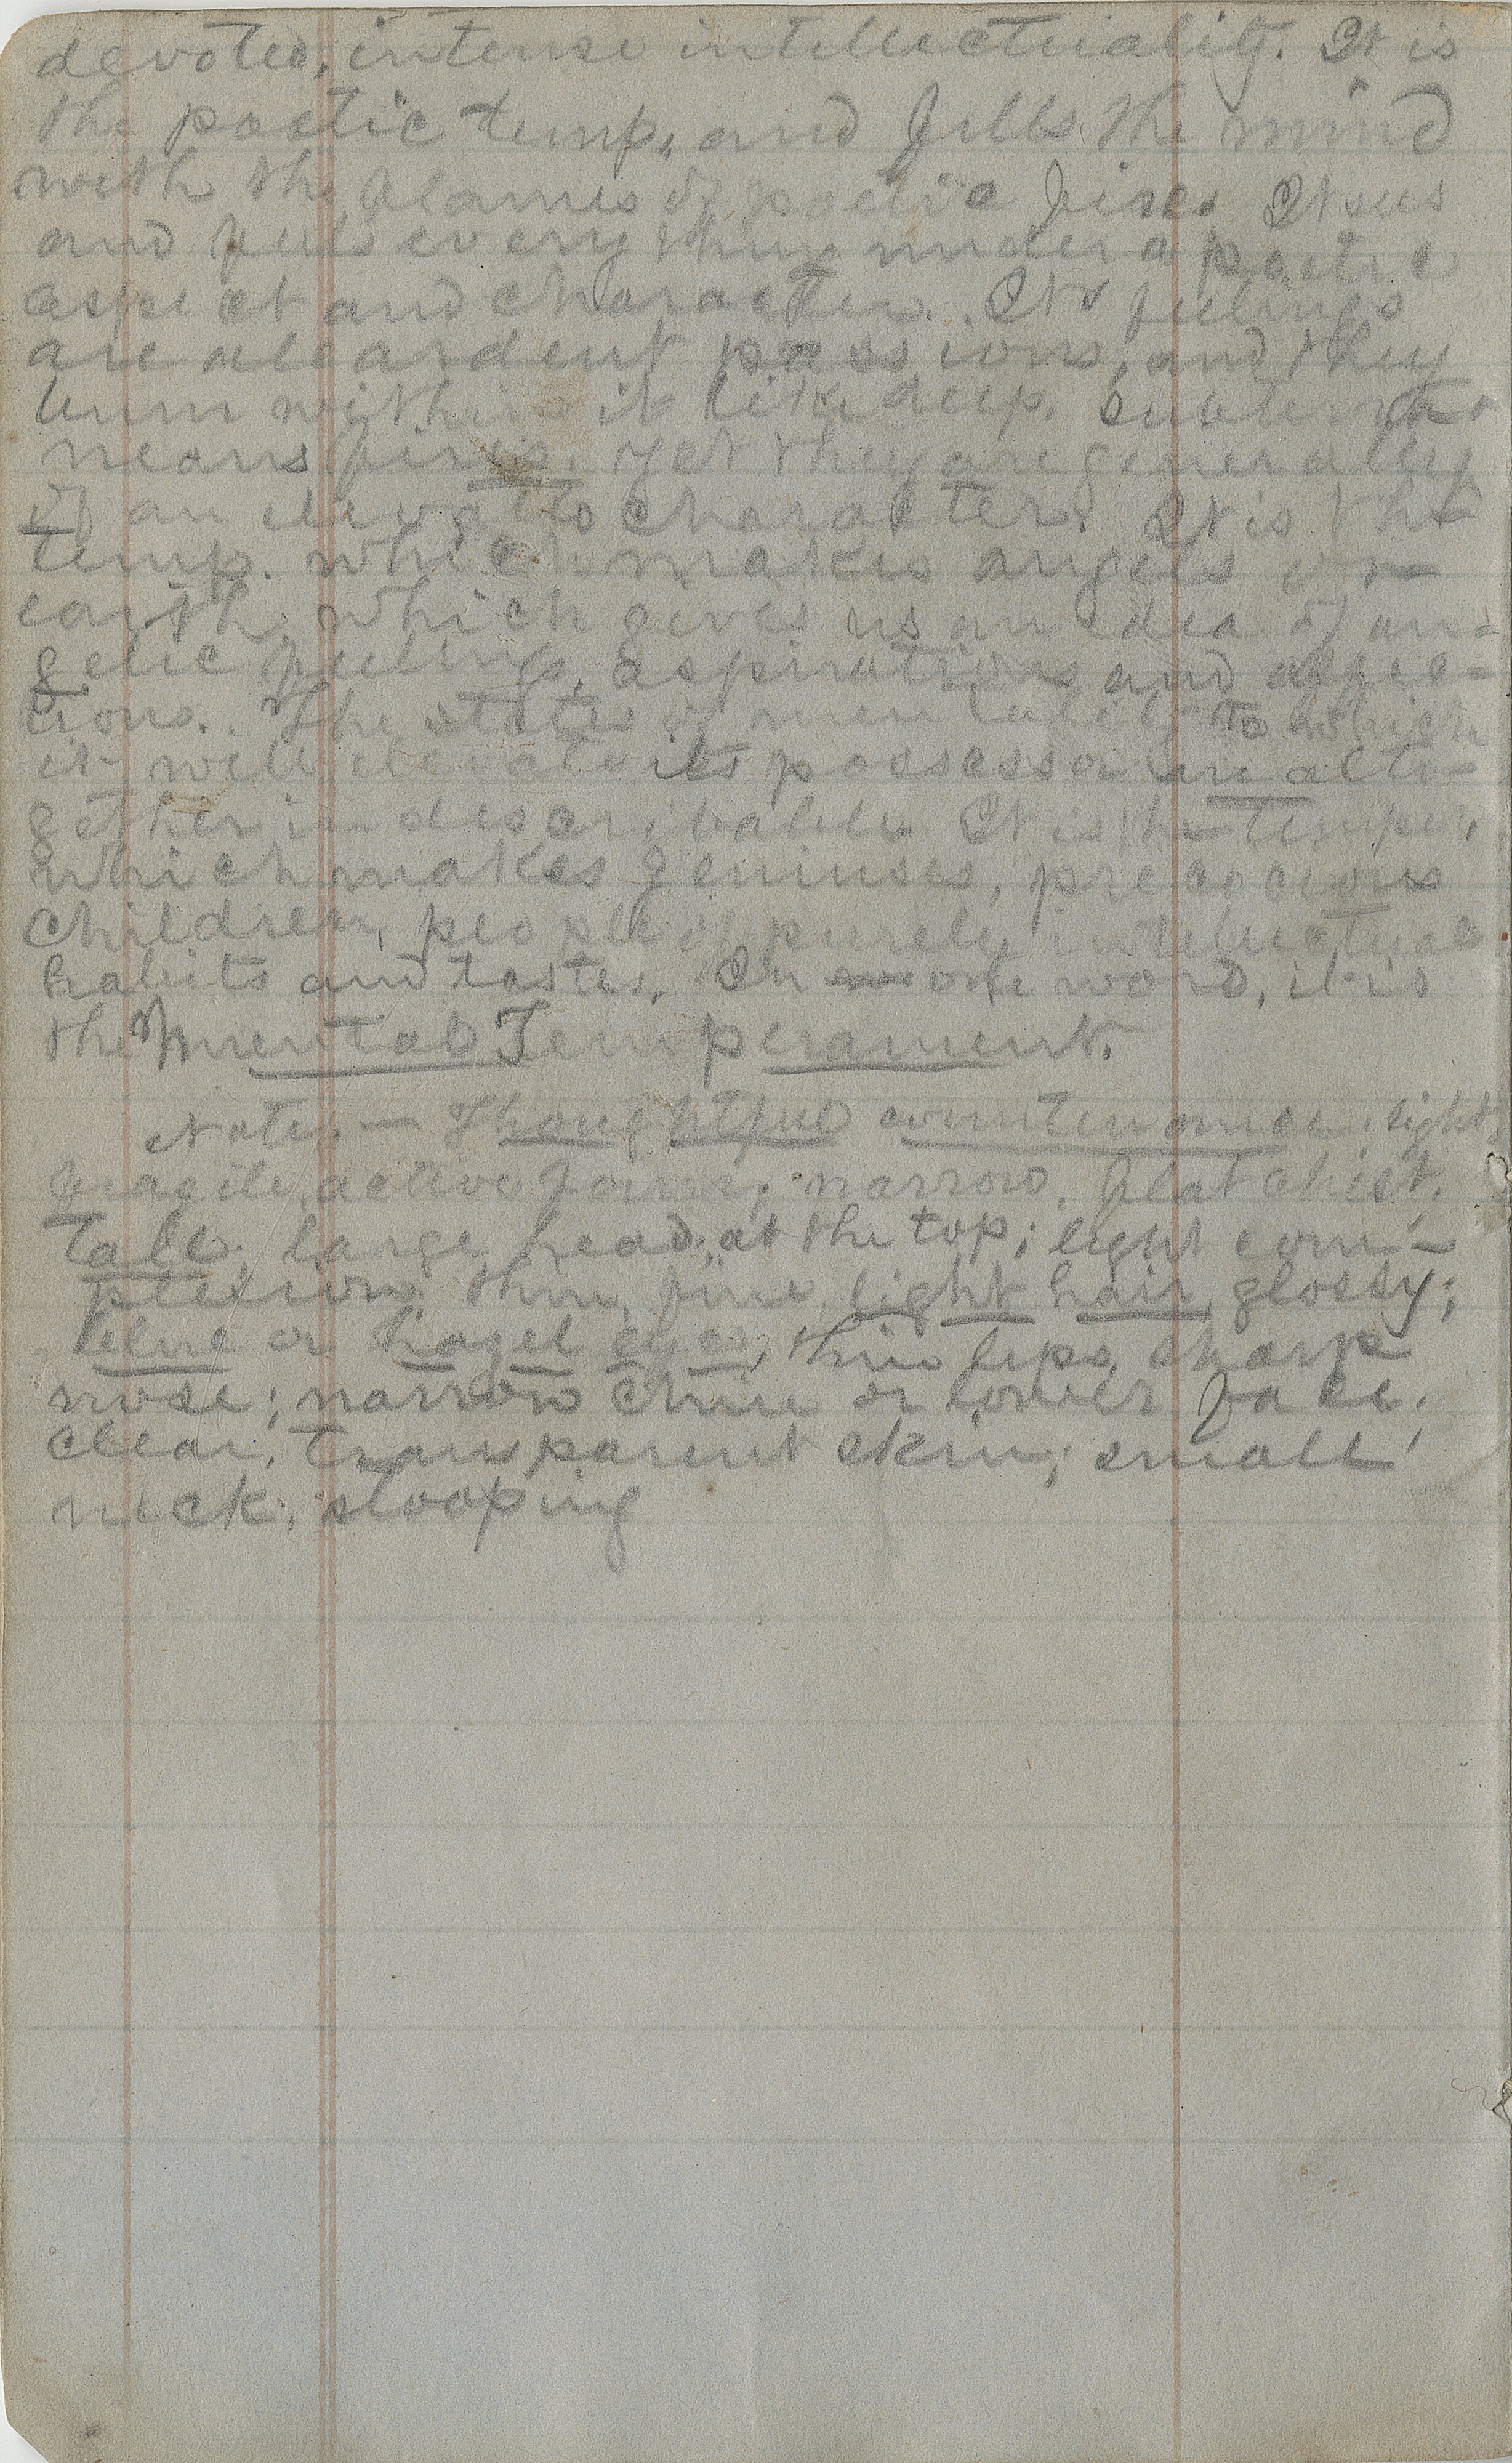 devoted, intense intellectuality. It is
the poetic temp. and fills the mind
with the flames of poetic fire. It sees
and feels everything under a poetic
aspect and character. Its feelings
are all ardent passions, and they
burn within it like deep, subterra-
neans fires. Yet they are generally
of an elevated character. It is the
temp. which makes angels on
earth, which gives us an idea of an-
gelic feelings, aspirations and affec-
tions. The states of mentality to which
it will elevate its possessor are alto-
gether indescribable. It is the temper.
which makes geniuses, precocious
children, people of purely intellectual
habits and tastes. In one word, it is
the Mental Temperament.
Note. — Thoughtful countenance, light,
fragile, active form; narrow, flat chest,
tall, large head at the top; light com-
plexion, thin, fine, light hair, glossy;
blue or hazel eyes, thin lips, sharp
nose; narrow chin or lower face,
clear, transparent skin; small
neck; stooping